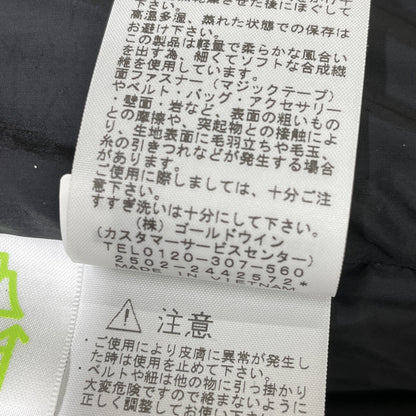 させた後にほぐして
下さい。
高温多湿、蒸れた状態での保存は
お避け下さい。
この製品は軽量で柔らかな風合い
を出す為、細くてソフトな合成繊
維を使用しています。
面ファスナー（マジックテープ）
やベルト・バッグ・アクセサリー
・壁面・岩など、表面の粗いもの
との摩擦や、突起物との接触によ
り、生地表面に毛羽立ちや毛玉、
糸の引きつれなどが発生する場合
があります。
ご使用に際しましては、十分ご注
意下さい。
すすぎ洗いは十分にして下さい。
（株）ゴールドウイン
（カスタマーサービスセンター）
TEL0120-307-560
2502-2442572*
MADE IN VIETNAM
注意
・ご使用により皮膚に異常が発生し
た時は使用を止めて下さい。
・ベルトや紐は他の物に引っ掛かり
大変危険ですので絡まないように
正しく調整してお使い下さい